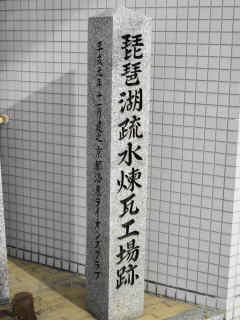 琵琶湖疏水煉瓦工場跡
平成元年十一月建之京都洛東ライオンズクラブ